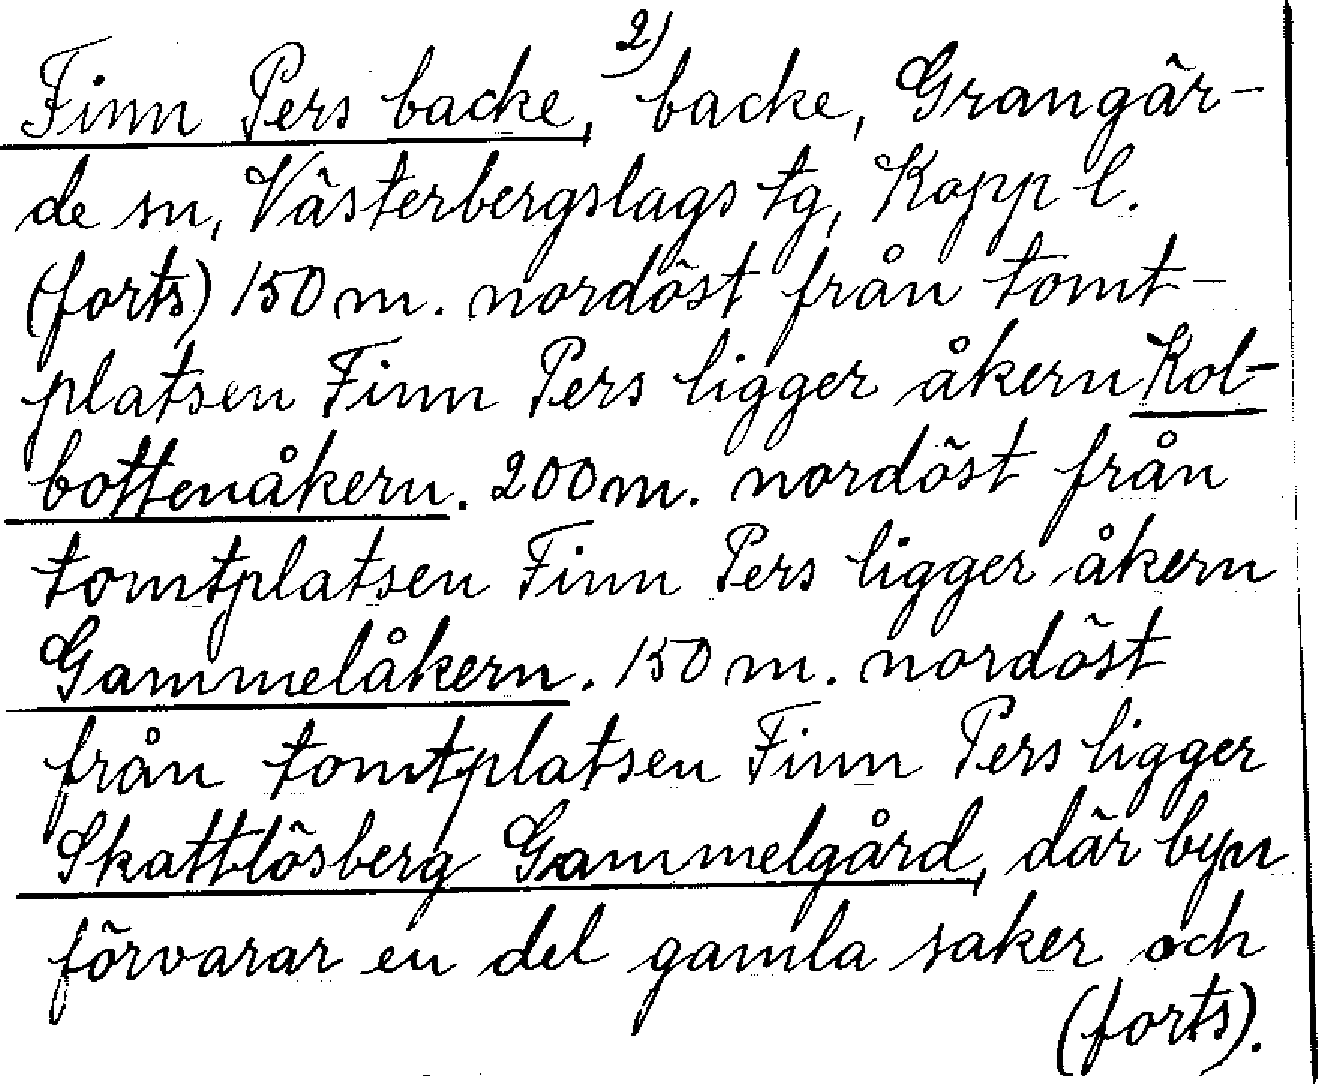 Finn Pers backe, 2) backe, Grangär-
de sn, Västerbergslags tg, Kopp l.
(forts) 150 m. nordöst från tomt-
platsen Finn Pers ligger åkern Kol-
bottenåkern. 200 m. nordöst från
tomtplatsen Finn Pers ligger åkern
Gammelåkern. 150 m. nordöst
från tomtplatsen Finn Pers ligger
Skattlösberg Gammelgård, där byn
förvarar en del gamla saker och
(forts).